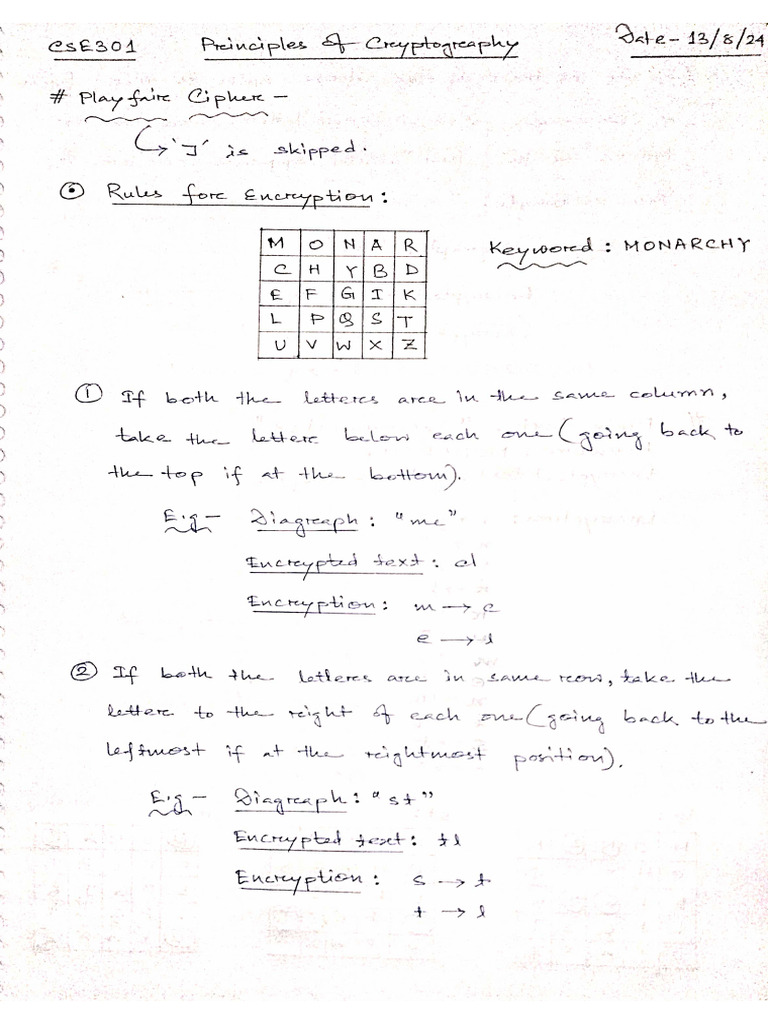 CSE301 Principles of Cryptography Date - 13/8/24
# Playfair Cipher -
↳ 'J' is skipped.
⊙ Rules for Encryption:
M O N A R
C H Y B D
E F G I K
L P Q S T
U V W X Z
Keyword: MONARCHY
① If both the letters are in the same column,
take the letter below each one (going back to
the top if at the bottom).
E.g - Diagraph: "me"
Encrypted text: cl
Encryption: m → c
e → l
② If both the letters are in same row, take the
letter to the right of each one (going back to the
leftmost if at the rightmost position).
E.g - Diagraph: "st"
Encrypted text: tl
Encryption: s → t
t → l